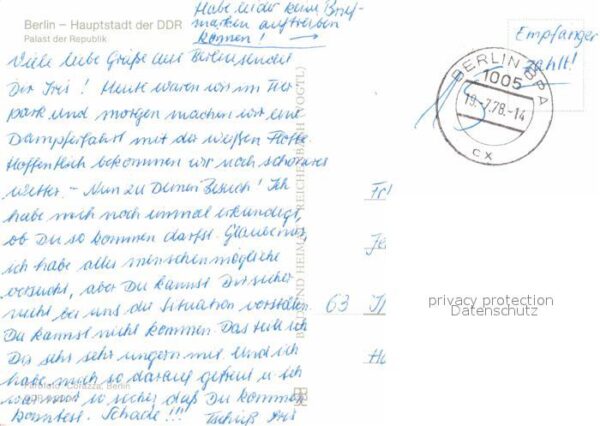 Berlin – Hauptstadt der DDR
Palast der Republik
Habe leider keine Brief-
marken auftreiben
können! →
Empfänger
zahlt!
BERLIN BPA
1005
19.-7.78.-14
cx
15
Viele liebe Grüße aus Berlin sendet
Dir Iris! Heute waren wir im Tier-
park und morgen machen wir eine
Dampferfahrt mit der weißen Flotte.
Hoffentlich bekommen wir noch schöneres
Wetter. – Nun zu Deinem Besuch! Ich
habe mich noch einmal erkundigt,
ob Du so kommen darfst. Glaube mir,
ich habe alles menschenmögliche
versucht, aber Du kannst Dir sicher
nicht bei uns die Situation vorstellen.
Du kannst nicht kommen. Das teile ich
Dir sehr sehr ungern mit. Und ich
habe mich so darauf gefreut u. ich
war mir so sicher, daß Du kommen
könntest. Schade!!! Tschüß Iris
BILD UND HEIMAT REICHENBACH (VOGTL)
63
privacy protection
Datenschutz
Berlin